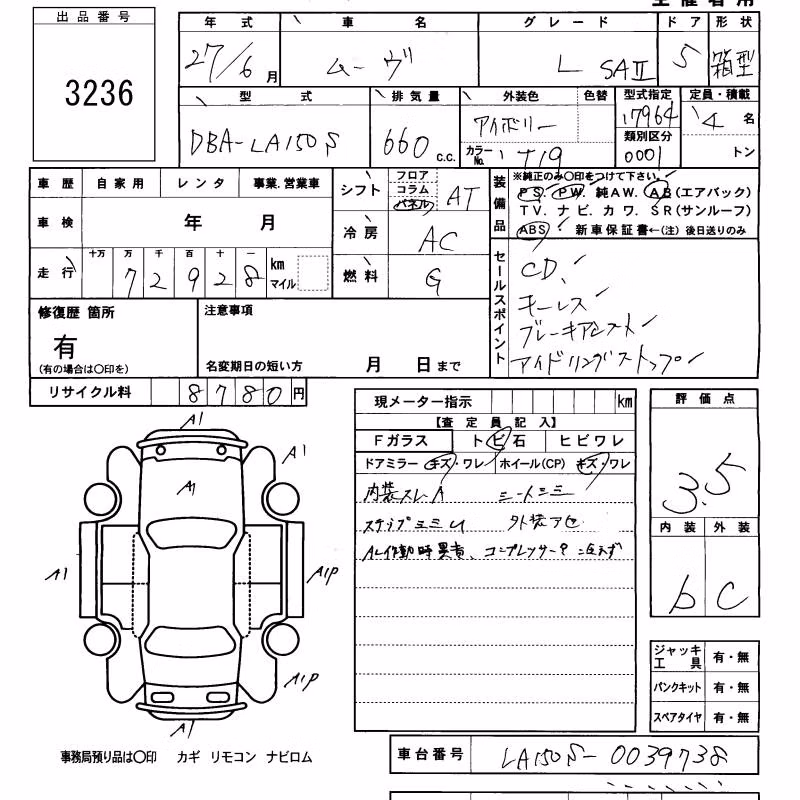 出品番号
3236
年式 車名 グレード ドア 形状
27/6月 ムーヴ L SAⅡ 5 箱型
型式 排気量 外装色 色替 型式指定 定員・積載
DBA-LA150S 660 c.c. アイボリー 17964 4 名
カラーNo. T19 類別区分 0001 トン
車歴 自家用 レンタ 事業.営業車
シフト フロア コラム パネル AT
装備品 ※純正のみ〇印をつけて下さい。
PS. PW. 純AW. AB(エアバック)
TV. ナビ. カワ. SR(サンルーフ)
ABS. 新車保証書←(注) 後日送りのみ
車検 年 月
冷房 AC
走行 十万 万 千 百 十 一 km マイル
7 2 9 2 8
燃料 G
セールスポイント
CD、
キーレス
ブレーキアシスト
アイドリングストップ
修復歴 箇所
有
(有の場合は〇印を)
注意事項
名変期日の短い方 月 日まで
リサイクル料 8780円
現メーター指示 km
【査定員記入】
Fガラス トビ石 ヒビワレ
ドアミラー キズ・ワレ ホイール(CP) キズ・ワレ
内装スレA シートシミ
ステップ 外装アセ
作動時異音、コンプレッサー?
評価点
3.5
内装 外装
b C
A1
A1
A1
A1
A1P
A1P
A1
ジャッキ 工具 有・無
パンクキット 有・無
スペアタイヤ 有・無
事務局預り品は〇印 カギ リモコン ナビロム
車台番号 LA150S-0039738